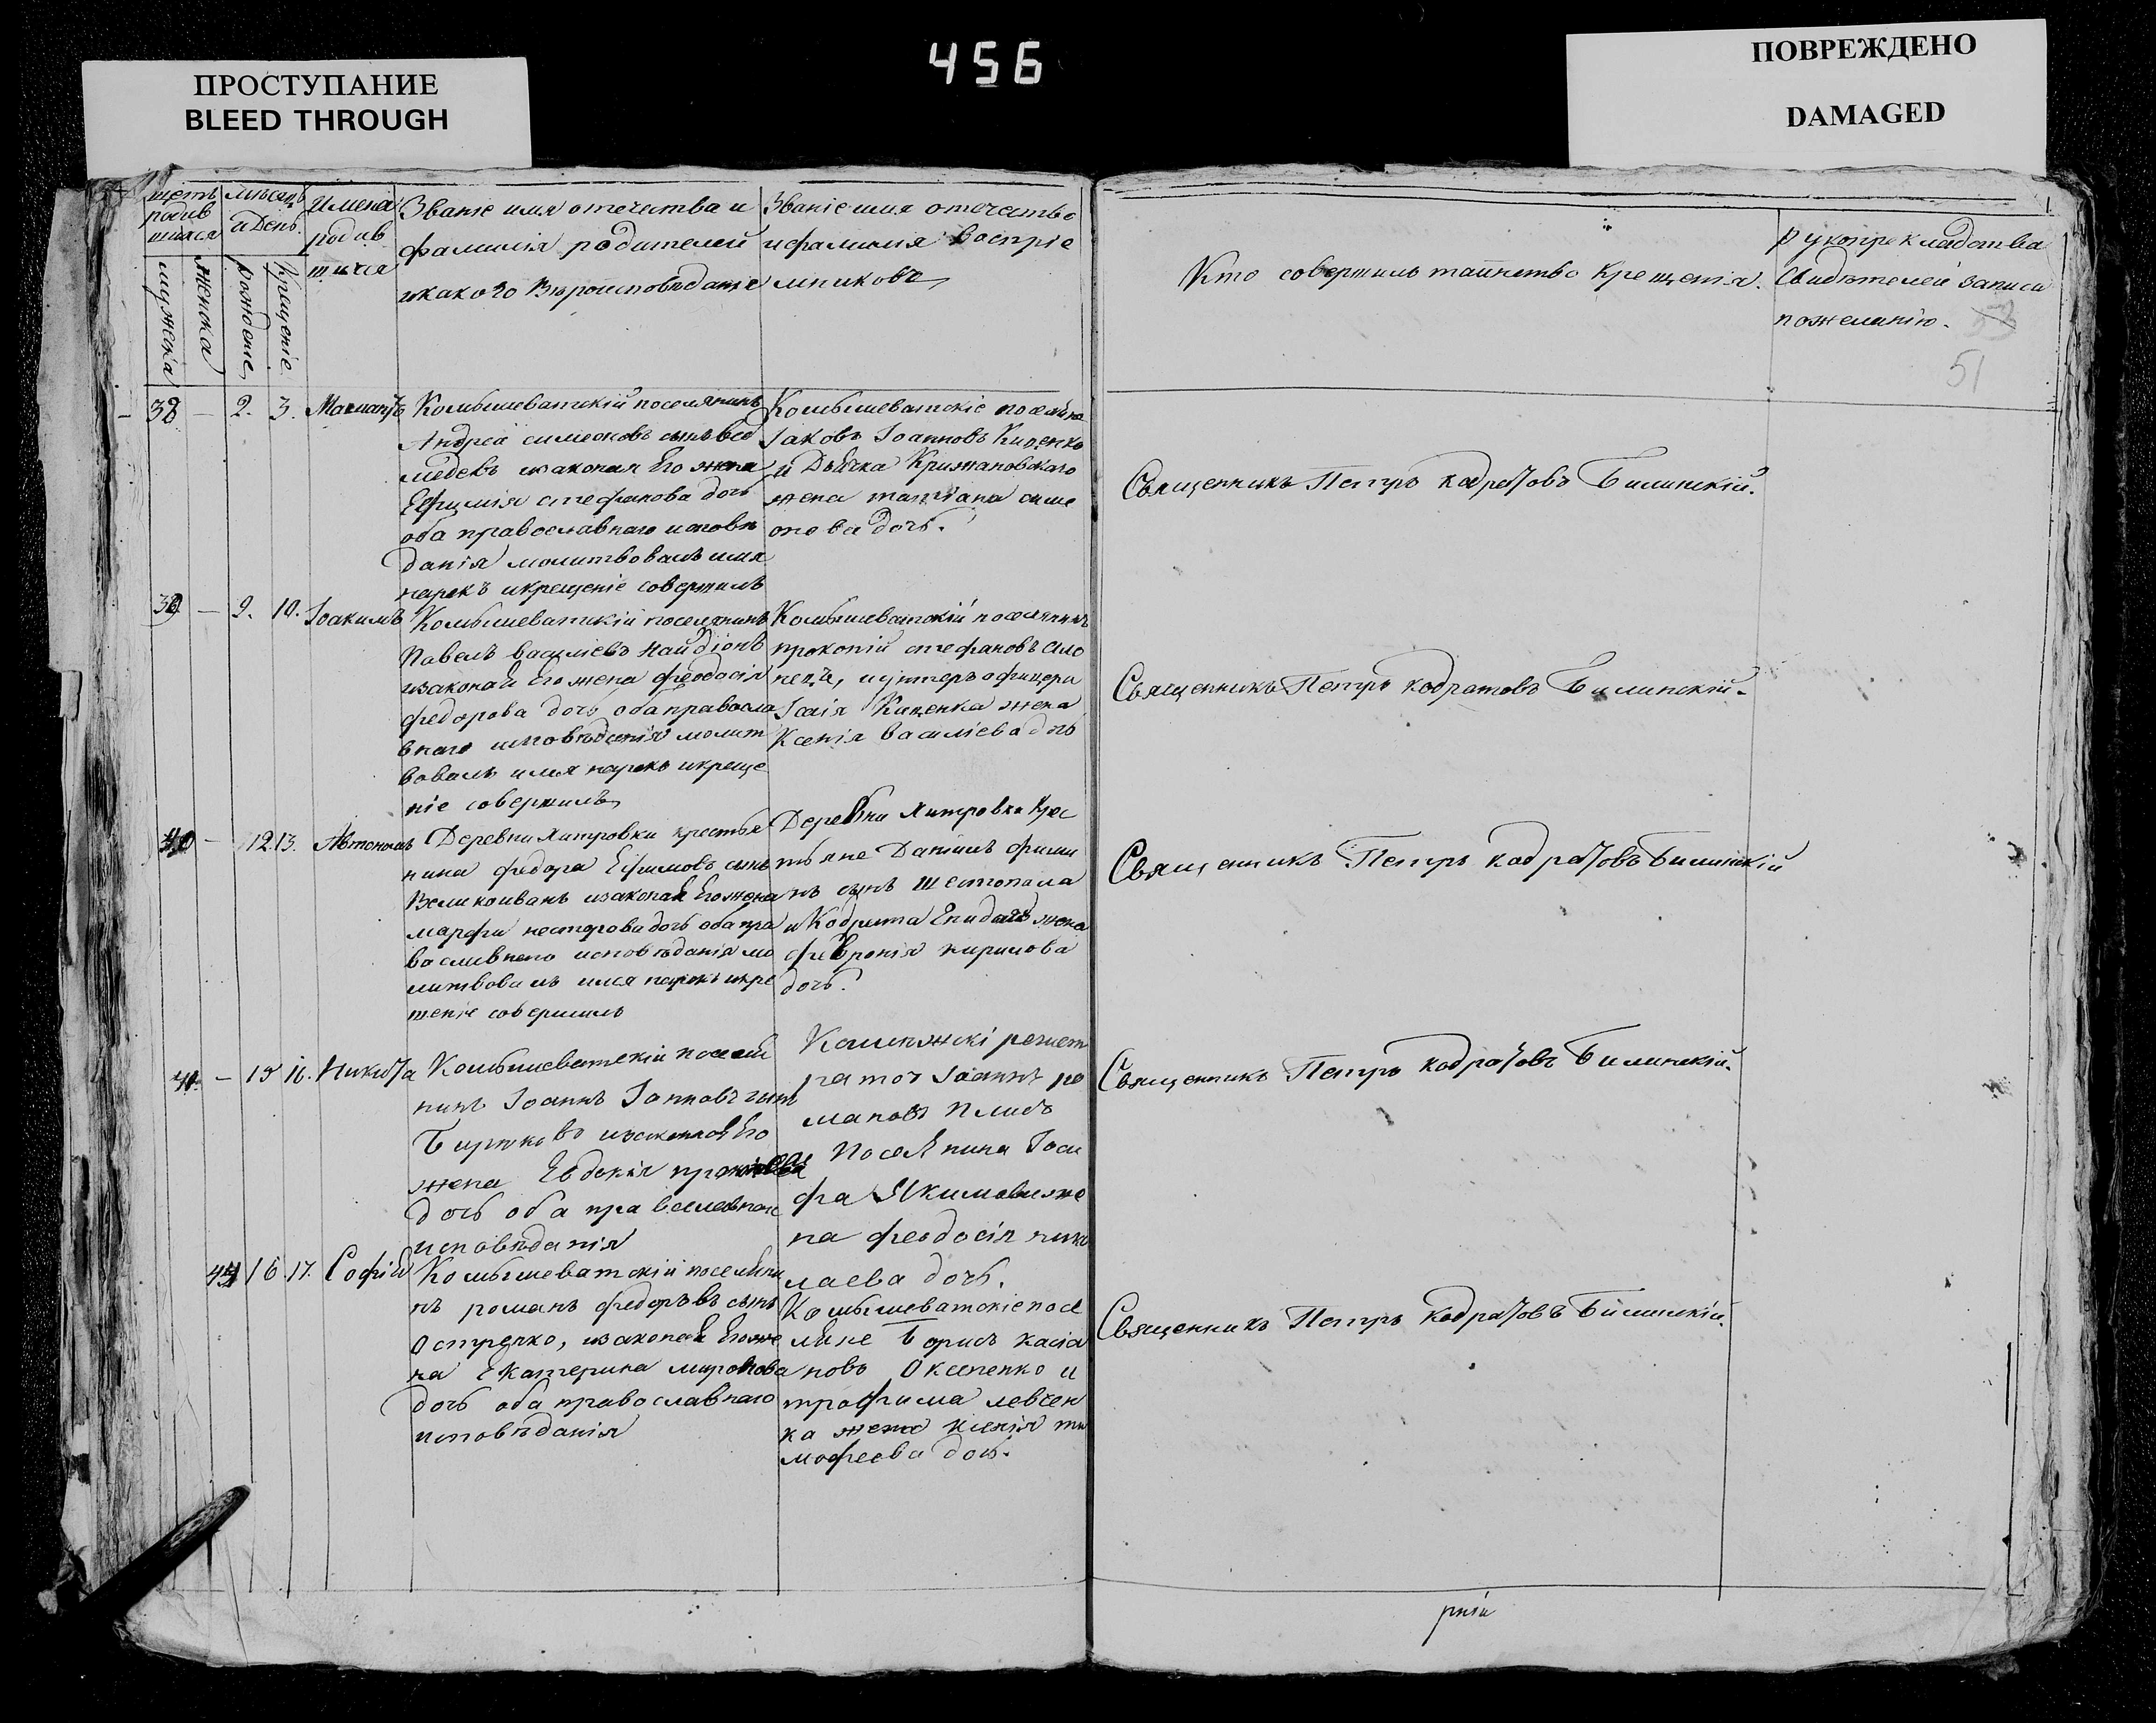 456
ПРОСТУПАНИЕ
BLEED THROUGH
ПОВРЕЖДЕНО
DAMAGED
щетъ
родив
шихся
мужска
женска
мѣсяцъ
и день
рожденіе
крещеніе
Имена
родив
шихся
Званіе имя отечества и
фамилія родителей
и какого вѣроисповѣданіе
Званіе имя отечество
и фамилія воспріе
мниковъ
Кто совершилъ таинство Крещенія.
рукопрекладства
свидѣтелей записи
пожеланію.
51
38 — 2. 3.
Комышеватскій поселянинъ
Андрей симеоновъ сынъ
законная Его жена
Ефимія стефанова дочь
оба православнаго исповѣ
данія молитвовалъ имя
нарекъ и крещеніе совершилъ
Комышеватскіе поселяне
Іаковъ Іоанновъ Куценко
и Дьячка Крижановскаго
жена татіана симе
онова дочь.
Священникъ Петръ кодратовъ Билинскій.
39 — 9. 10. Іоакимъ
Комышеватскій поселянинъ
Павелъ василіевъ Найдіонъ
изаконая его жена феодосія
федорова дочь оба правосла
внаго исповѣданія молит
вовалъ имя нарекъ и креще
ніе совершилъ
Комышеватскій поселянинъ
прокопій стефановъ
унтеръ офицера
Куценка жена
Ксенія василіева дочь
Священникъ Петръ кодратовъ Билинскій.
40 — 12 13. Автономъ
Деревни Хитровки крестья
нина федора Ефимовъ сынъ
Великоиванъ изаконая Его жена
марфа несторова дочь оба пра
вославнаго исповѣданія мо
литвовалъ имя нарекъ и кре
щеніе совершилъ
Деревни Хитровки Крес
тьяне Даніилъ
сынъ шестопала
и Кодрата жена
февронія кирилова
дочь.
Священникъ Петръ кодратовъ Билинскій
41 — 15 16. Никита
Комышеватскій поселя
нинъ Іоаннъ Іанновъ сынъ
изаконная Его
жена Евдокія
дочь оба православнаго
исповѣданія
регист
раторъ Іоаннъ ро
мановъ
Поселянина Іоси
фа Якимова же
на феодосія нико
лаева дочь.
Священникъ Петръ кодратовъ Билинскій.
16. 17. Софія
Комышеватскій поселяни
нъ романъ федоровъ сынъ
Остренко, изаконая Его же
на Екатерина миронова
дочь оба православнаго
исповѣданія
Комышеватскіе посе
ляне Борисъ касіа
новъ Оксененко и
трофима левчен
ка жена ксенія ти
мофеева дочь.
Священникъ Петръ кодратовъ Билинскій.